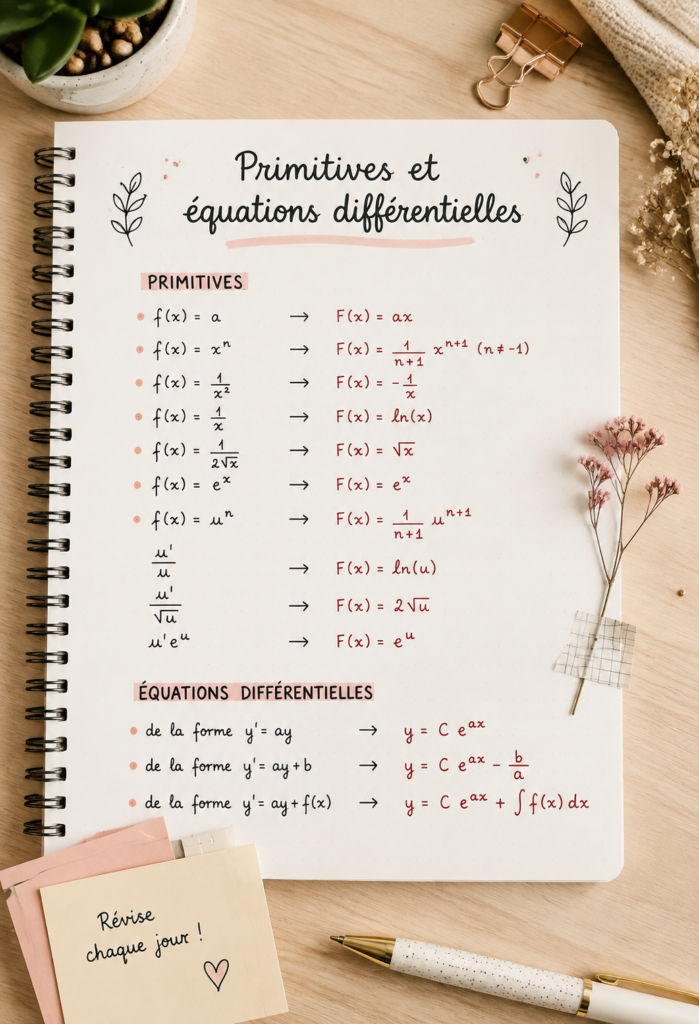 Primitives et
équations différentielles
PRIMITIVES
f(x) = a → F(x) = ax
f(x) = xⁿ → F(x) = 1/(n+1) xⁿ⁺¹ (n ≠ -1)
f(x) = 1/x² → F(x) = - 1/x
f(x) = 1/x → F(x) = ln(x)
f(x) = 1/(2√x) → F(x) = √x
f(x) = eˣ → F(x) = eˣ
f(x) = uⁿ → F(x) = 1/(n+1) uⁿ⁺¹
u'/u → F(x) = ln(u)
u'/√u → F(x) = 2√u
u'eᵘ → F(x) = eᵘ
ÉQUATIONS DIFFÉRENTIELLES
de la forme y' = ay → y = C eᵃˣ
de la forme y' = ay + b → y = C eᵃˣ - b/a
de la forme y' = ay + f(x) → y = C eᵃˣ + ∫ f(x) dx
Révise
chaque jour !